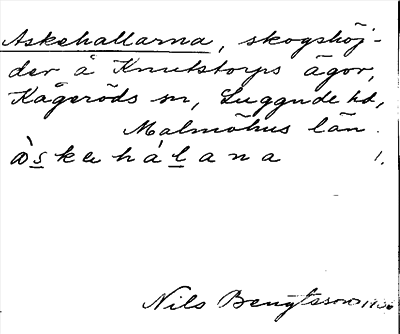 Askehallarna, skogshöj-
der å Knutstorps ägor,
Kågeröds sn, Luggude hd,
Malmöhus län.
àskahálana 1.
Nils Bengtsson 1936